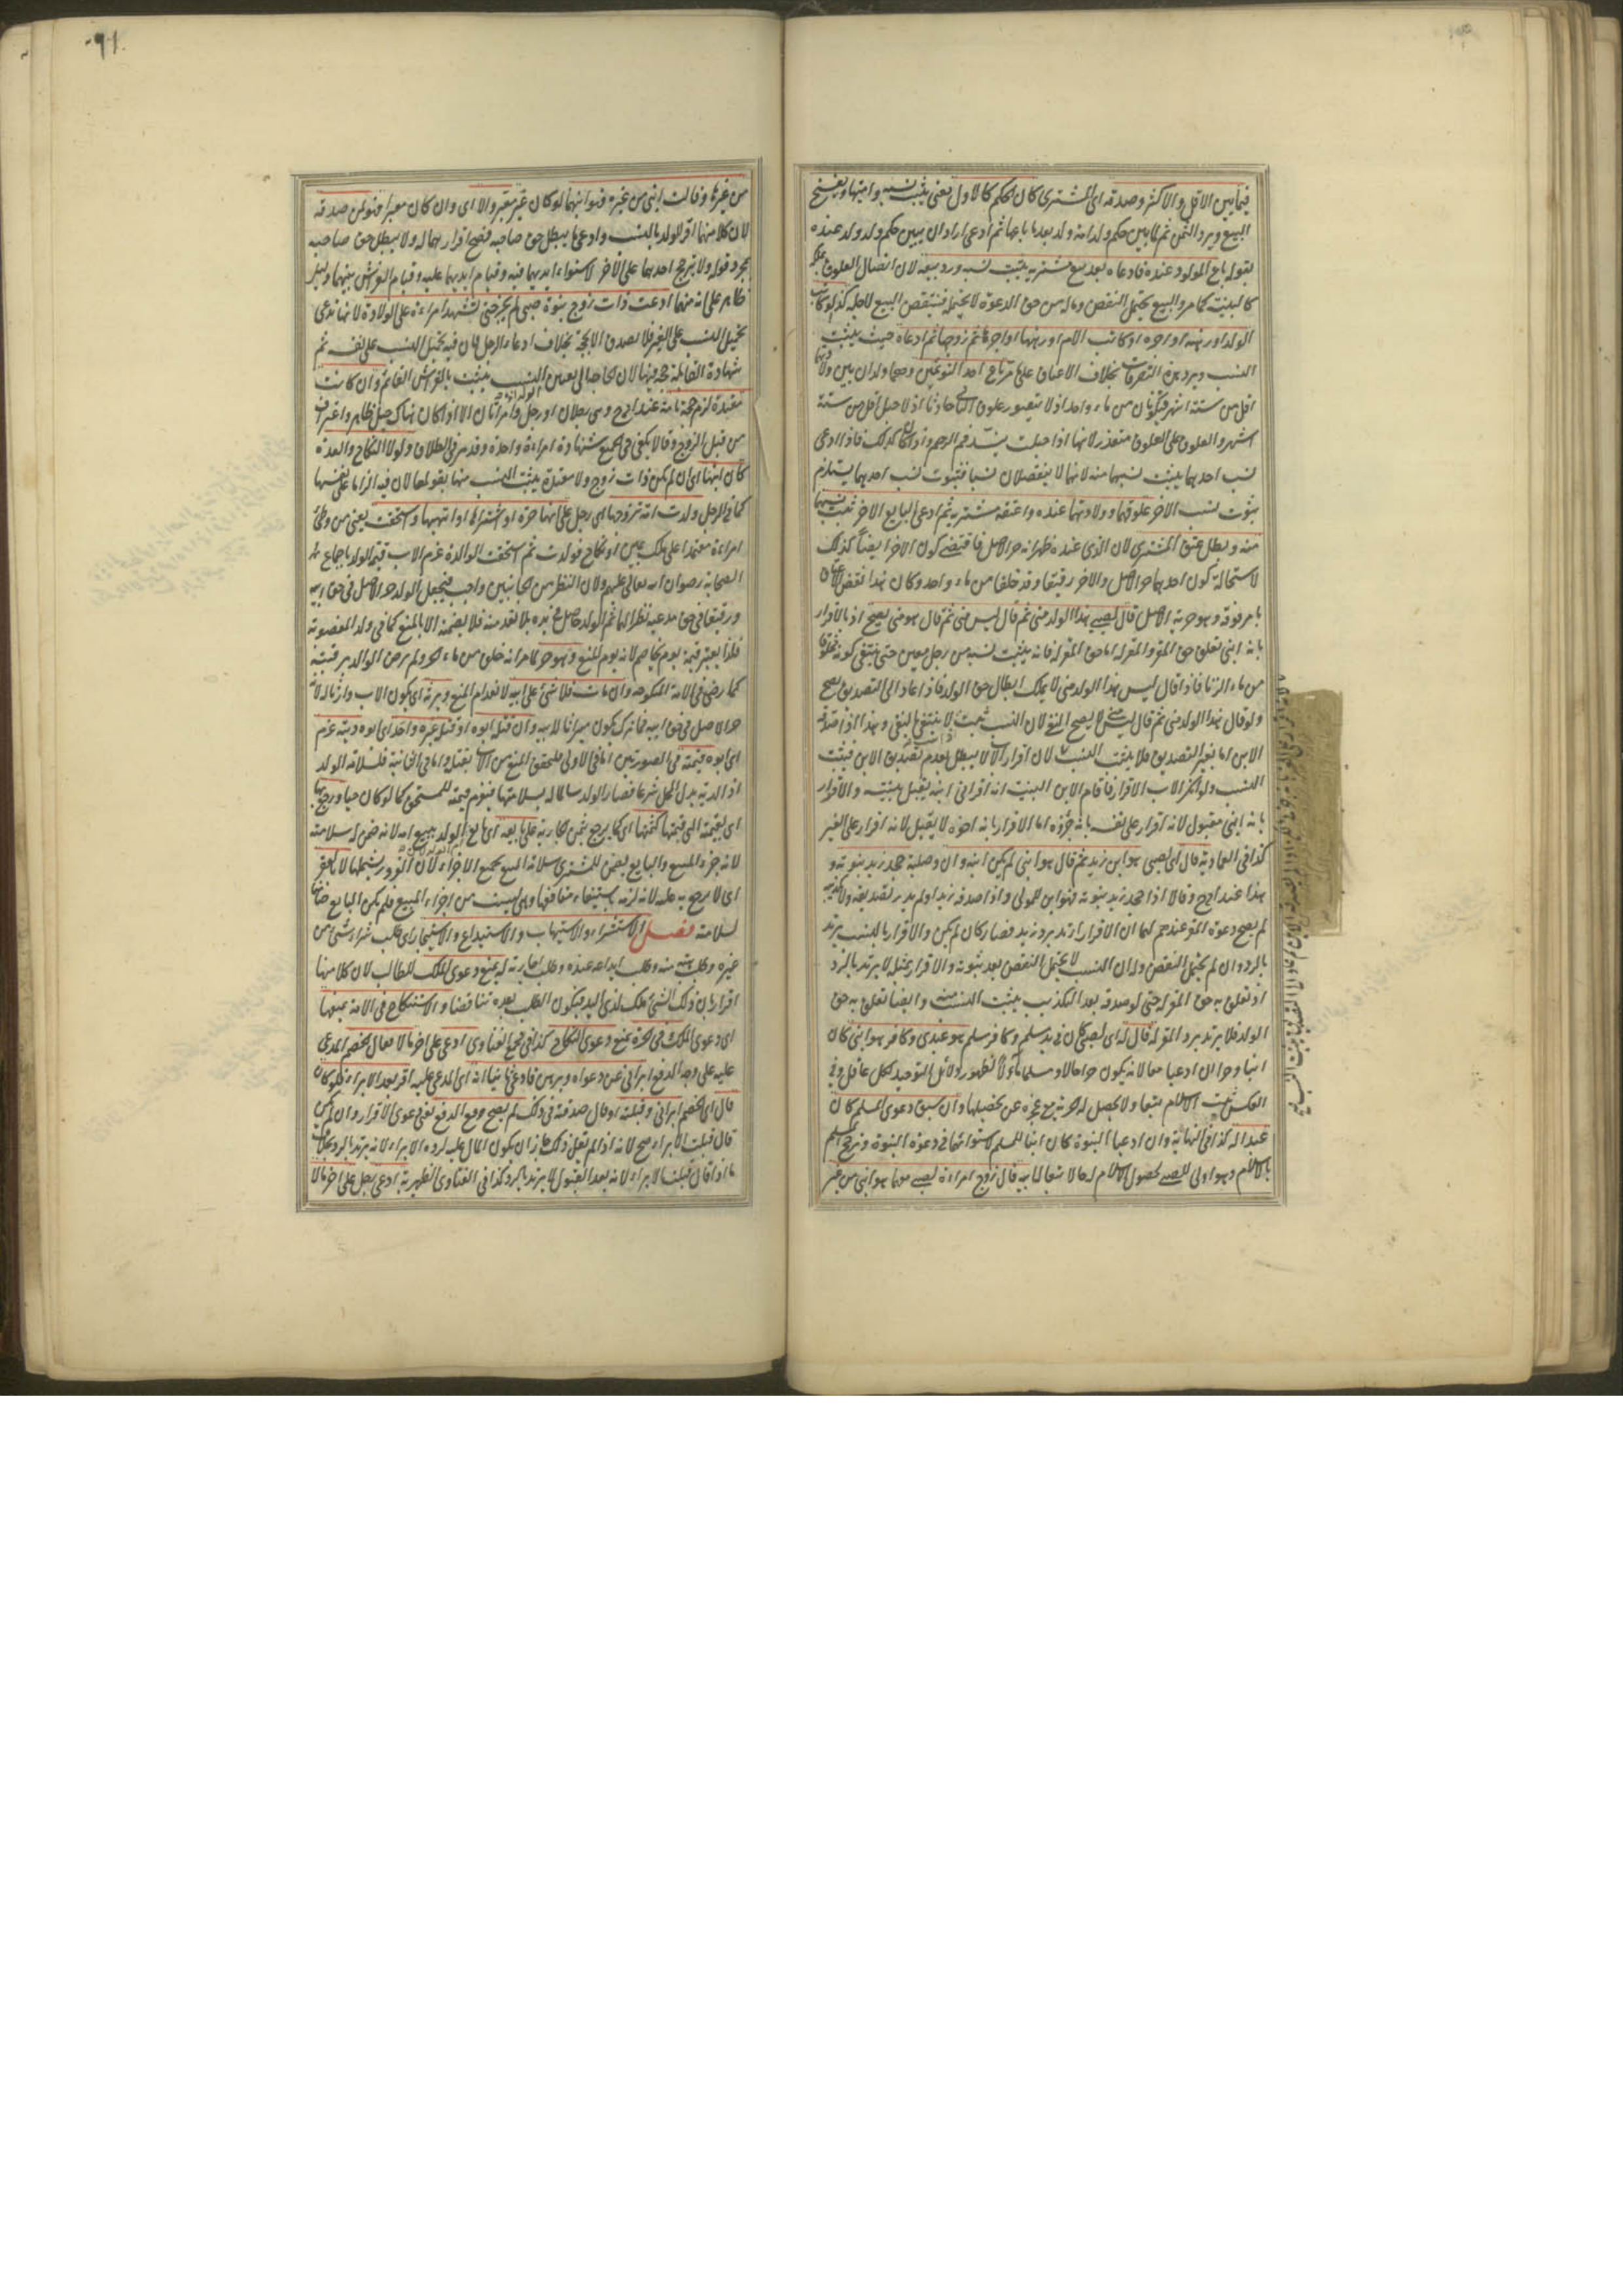 فيما بين الاقل والاكثر وصدقه اى المشترى كان الحكم كالاول يعنى يثبت نسبه واميتها ويفسخ
البيع ويرد الثمن ثم لما بين حكم ولد امته ولد بعد ما باعها ثم ادعى اراد ان يبين حكم ولد ولد عنده
بقوله باع المولود عنده فادعاه بعد بيع مشتريه يثبت نسبه ورد بيعه لان اتصال العلوق بملكه
كالبينة كما مر والبيع يحتمل النقض وماله من حق الدعوة لا يحتمله فينتقض البيع لاجله كذا لو كاتب
الولد او رهنه او اجره او كاتب الام او رهنها او اجرها ثم زوجها ثم ادعاه حيث يثبت
النسب ويرد هذه التصرفات بخلاف الاعتاق على ما مر باع احد التوءمين وهما ولدان بين ولادتهما
اقل من ستة اشهر فيكونان من ماء واحد اذ لا يتصور علوق الثانى حادثا اذ لا حبل اقل من ستة
اشهر والعلوق على العلوق متعذر لانها اذا حبلت ينسد فم الرحم واذا كان كذلك فاذا ادعى
نسب احدهما يثبت نسبهما منه لانهما لا ينفصلان نسبا فثبوت نسب احدهما يستلزم
ثبوت نسب الاخر علوقهما وولادتهما عنده واعتقه مشتريه ثم ادعى البايع الاخر ثبت نسبهما
منه وبطل عتق المشترى لان الذى عنده ظهر انه حر الاصل فاقتضى كون الاخر ايضا كذلك
لاستحالة كون احدهما حر الاصل والاخر رقيقا وقد خلقا من ماء واحد وكان هذا نقض الاعتاق
بامر فوقه وهو حرية الاصل قال لصبى هذا الولد منى ثم قال ليس منى ثم قال هو منى يصح اذ بالاقرار
بانه ابنى تعلق حق المقر والمقر له اما حق المقر له فانه يثبت نسبه من رجل معين حتى ينتفى كونه مخلوقا
من ماء الزنا فاذا قال ليس هذا الولد منى لا يملك ابطال حق الولد فاذا عاد الى التصديق يصح
ولو قال هذا الولد منى ثم قال ليس منى لا يصح النفى لان النسب ثبت لا ينتفى بالنفى وهذا اذا صدقه
الابن اما بغير التصديق فلا يثبت النسب لان اقرار الاب لا يبطل بعدم تصديق الابن فيثبت
النسب ولو انكر الاب الاقرار فاقام الابن البينة انه اقر انى ابنه يقبل بينته والاقرار
بانه ابنى مقبول لانه اقرار على نفسه بانه جزؤه اما الاقرار بانه اخوه لا يقبل لانه اقرار على الغير
كذا فى العمادية قال لصبى هو ابن زيد ثم قال هو ابنى لم يكن ابنه وان وصلية جحد زيد بنوته و
هذا عند ابى ح وقالا اذا جحد زيد بنوته فهو ابن للمولى واذا صدقه زيد او لم يدر تصديقه ولا تكذيبه
لم يصح دعوة المقر عندهم لهما ان الاقرار ارتد برد زيد فصار كان لم يكن والاقرار بالنسب يرتد
بالرد وان لم يحتمل النقض وله ان النسب لا يحتمل النقض بعد ثبوته والاقرار بمثله لا يرتد بالرد
اذ تعلق به حق المقر له حتى لو صدقه بعد التكذيب يثبت النسب منه وايضا تعلق به حق
الولد فلا يرتد برد المقر له قال لصبى كان فى يد مسلم وكافر مسلم هو عبدى وكافر هو ابنى كان
ابنا وحرا ان ادعيا معا لانه يكون حرا حالا ومسلما مآلا لظهور دلائل التوحيد لكل عاقل وفى
العكس يثبت الاسلام تبعا ولا يحصل له حرية مع عجزه عن تحصيلها وان سبق دعوى المسلم كان
عبدا له كذا فى النهاية وان ادعيا البنوة كان ابنا للمسلم لاستوائهما فى دعوة البنوة وترجح المسلم
بالاسلام وهو اولى للصبى لحصول الاسلام له حالا تبعا لابيه قال زوج امراءة لصبى معهما هو ابنى من غيرها
من غيرها وقالت ابنى من غيره فهو ابنهما لو كان غير معبر والا اى وان كان معبرا فهو لمن صدقه
لان كلا منهما اقر للولد بالنسب وادعى ما يبطل حق صاحبه فصح اقرارهما له ولا يبطل حق صاحبه
بمجرد قوله ولا يترجح احدهما على الاخر لاستواء ايديهما فيه وقيام ايديهما عليه وقيام الفراش بينهما دليل
ظاهر على انه منهما ادعت ذات زوج بنوة صبى لم يجز حتى تشهد امراءة على الولادة لانها تدعى
تحميل النسب على الغير فلا تصدق الا بحجة بخلاف ادعاء الرجل فان فيه تحميل النسب على نفسه ثم
شهادة القابلة حجة فيها لان الحاجة الى تعيين الولد اذ النسب يثبت بالفراش القائم وان كانت
معتدة لزم حجة تامة عند ابى ح وهى رجلان او رجل وامراتان الا اذا كان هناك حبل ظاهر واعتراف
من قبل الزوج وقالا يكفى فى الجميع شهادة امراءة واحدة وقد مر فى الطلاق ولولا النكاح والعدة
كان ابنها اى ان لم يكن ذات زوج ولا معتدة يثبت النسب منها بقولها لان فيه الزاما على نفسها
كما فى الرجل ولدت امة تزوجها اى رجل على انها حرة او اشتراها او اتهبها واستحقت يعنى من وطئ
امراءة معتمدا على ملك يمين او نكاح فولدت ثم استحقت الوالدة غرم الاب قيمة الولد باجماع
الصحابة رضوان الله تعالى عليهم ولان النظر من الجانبين واجب فيجعل الولد حر الاصل فى حق ابيه
ورقيقا فى حق مدعيه نظرا لهما ثم الولد حاصل فى يده بلا تعد منه فلا يضمنه الا بالمنع كما فى ولد المغصوبة
فلذا يعتبر قيمته يوم يخاصم لانه يوم المنع وهو حر لما مر انه خلق من ماء الحر ولم يرض الوالد برقيته
كما رضى فى الامة المنكوحة وان مات فلا شئ على ابيه لانعدام المنع ويرثه اى يكون الاب وارثا له لانه
حر الاصل فى حق ابيه فما تركه يكون ميراثا لابيه وان قتله ابوه او قتل غيره واخذ اى ابوه ديته غرم
اى ابوه قيمته فى الصورتين اما فى الاولى فلتحقق المنع من الاب بقتله واما فى الثانية فلسلامة الولد
اذ الدية بدل المحل شرعا فصار الولد سالما له بسلامتها فيغرم قيمته للمستحق كما لو كان حيا ورجع بها
اى بقيمته التى قيمتها كثمنها اى كما يرجع بثمن الجارية على بايعه اى بايع الولد ببيع امه لانه ضمن له سلامته
لانه جزء المبيع والبايع يضمن للمشترى سلامة المبيع بجميع الاجزاء لان الغرور يشملها لا بالعقر
اى لا يرجع به عليه لانه لزمه باستيفاء منافعها وهى ليست من اجزاء المبيع فلم يكن البايع ضامنا
لسلامته فصل الاستشراء والاستيهاب والاستيداع والاستيجار اى طلب شراء شئ من
غيره وطلب هبته منه وطلب ايداعه عنده وطلب اجارته له يمنع دعوى الملك للطالب لان كلا منها
اقرار بان ذلك الشئ ملك لذى اليد فيكون الطلب بعده تناقضا والاستنكاح فى الامة يمنعها
اى دعوى الملك وفى الحرة يمنع دعوى النكاح كذا فى مجمع الفتاوى ادعى على اخر مالا فقال الخصم المدعى
عليه على وجه الدفع ابرانى عن دعواه وبرهن فادعى ثانيا انه اى المدعى عليه اقر بعد الابراء فلو كان
قال اى الخصم ابرانى وقبلته او قال صدقته فى ذلك لم يصح دفع الدفع يعنى دعوى الاقرار وان لم يكن
قال قبلت الابراء صح لانه اذا لم يقل ذلك جاز ان يكون المال عليه لرده الابراء لانه يرتد بالرد بخلاف
ما اذا قال قبلت الابراء لانه بعد القبول لا يرتد بالرد كذا فى الفتاوى الظهيرية ادعى رجل على اخر مالا